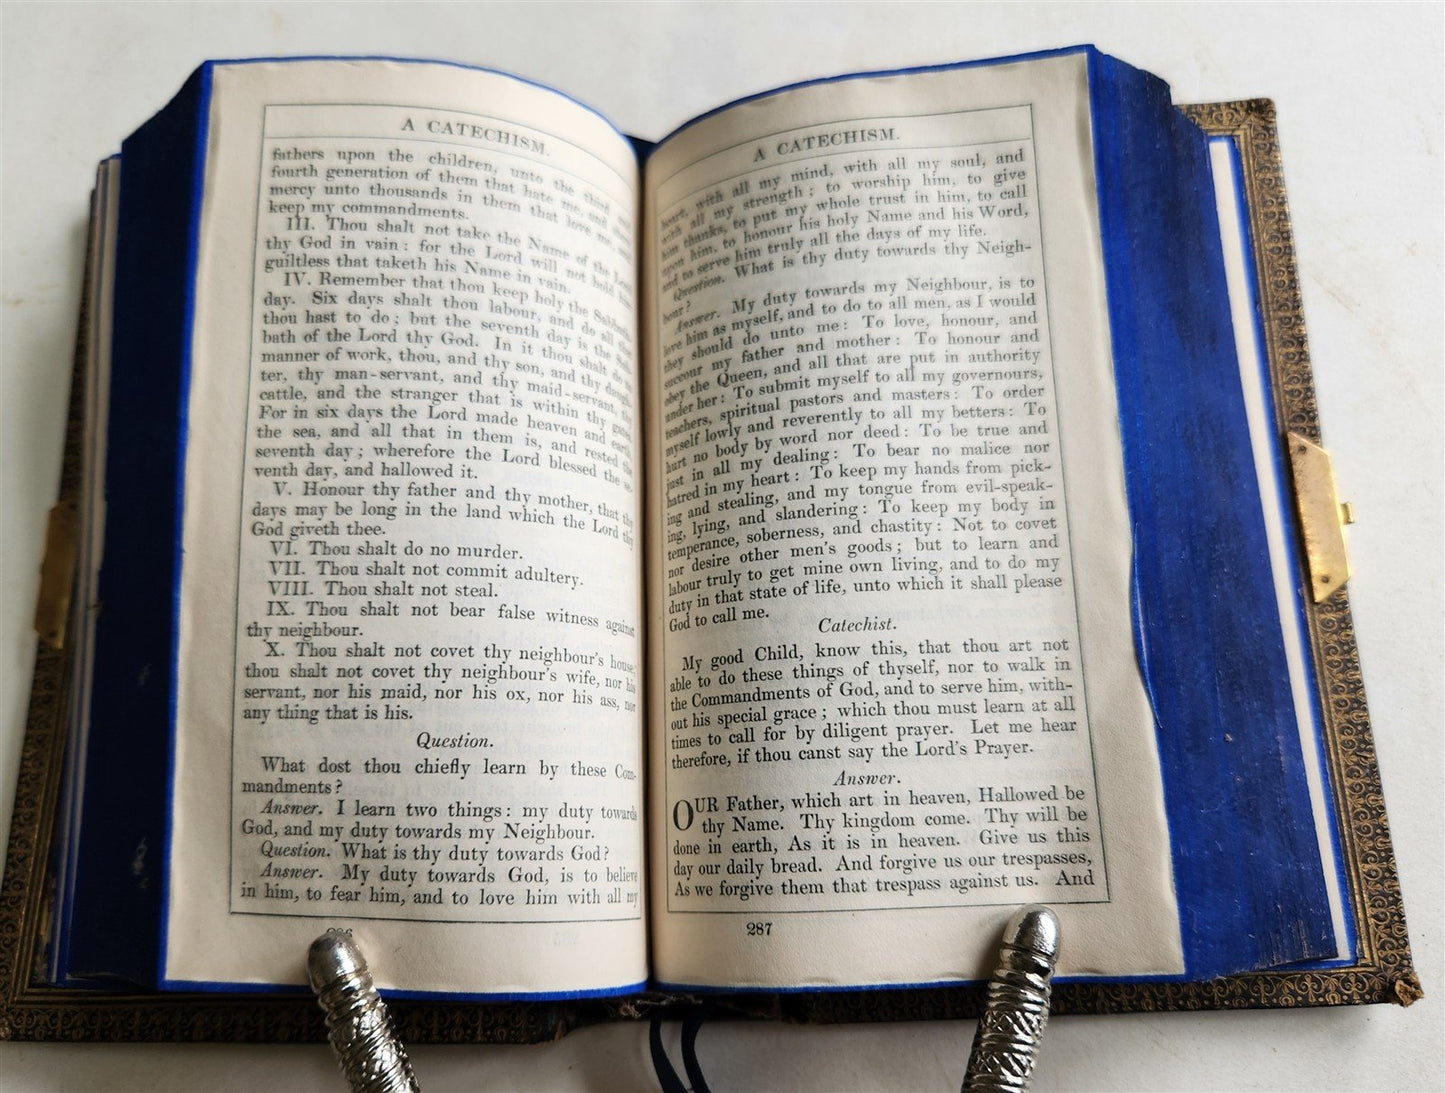 A CATECHISM.
fathers upon the children, unto the third and
fourth generation of them that hate me, and shew
mercy unto thousands in them that love me, and
keep my commandments.
III. Thou shalt not take the Name of the Lord
thy God in vain: for the Lord will not hold him
guiltless that taketh his Name in vain.
IV. Remember that thou keep holy the Sabbath-
day. Six days shalt thou labour, and do all that
thou hast to do; but the seventh day is the Sab-
bath of the Lord thy God. In it thou shalt do no
manner of work, thou, and thy son, and thy daugh-
ter, thy man-servant, and thy maid-servant, thy
cattle, and the stranger that is within thy gates.
For in six days the Lord made heaven and earth,
the sea, and all that in them is, and rested the
seventh day; wherefore the Lord blessed the se-
venth day, and hallowed it.
V. Honour thy father and thy mother, that thy
days may be long in the land which the Lord thy
God giveth thee.
VI. Thou shalt do no murder.
VII. Thou shalt not commit adultery.
VIII. Thou shalt not steal.
IX. Thou shalt not bear false witness against
thy neighbour.
X. Thou shalt not covet thy neighbour's house,
thou shalt not covet thy neighbour's wife, nor his
servant, nor his maid, nor his ox, nor his ass, nor
any thing that is his.
Question.
What dost thou chiefly learn by these Com-
mandments?
Answer. I learn two things: my duty towards
God, and my duty towards my Neighbour.
Question. What is thy duty towards God?
Answer. My duty towards God, is to believe
in him, to fear him, and to love him with all my
A CATECHISM.
heart, with all my mind, with all my soul, and
with all my strength; to worship him, to give
him thanks, to put my whole trust in him, to call
upon him, to honour his holy Name and his Word,
and to serve him truly all the days of my life.
Question. What is thy duty towards thy Neigh-
bour?
Answer. My duty towards my Neighbour, is to
love him as myself, and to do to all men, as I would
they should do unto me: To love, honour, and
succour my father and mother: To honour and
obey the Queen, and all that are put in authority
under her: To submit myself to all my governours,
teachers, spiritual pastors and masters: To order
myself lowly and reverently to all my betters: To
hurt no body by word nor deed: To be true and
just in all my dealing: To bear no malice nor
hatred in my heart: To keep my hands from pick-
ing and stealing, and my tongue from evil-speak-
ing, lying, and slandering: To keep my body in
temperance, soberness, and chastity: Not to covet
nor desire other men's goods; but to learn and
labour truly to get mine own living, and to do my
duty in that state of life, unto which it shall please
God to call me.
Catechist.
My good Child, know this, that thou art not
able to do these things of thyself, nor to walk in
the Commandments of God, and to serve him, with-
out his special grace; which thou must learn at all
times to call for by diligent prayer. Let me hear
therefore, if thou canst say the Lord's Prayer.
Answer.
OUR Father, which art in heaven, Hallowed be
thy Name. Thy kingdom come. Thy will be
done in earth, As it is in heaven. Give us this
day our daily bread. And forgive us our trespasses,
As we forgive them that trespass against us. And
287